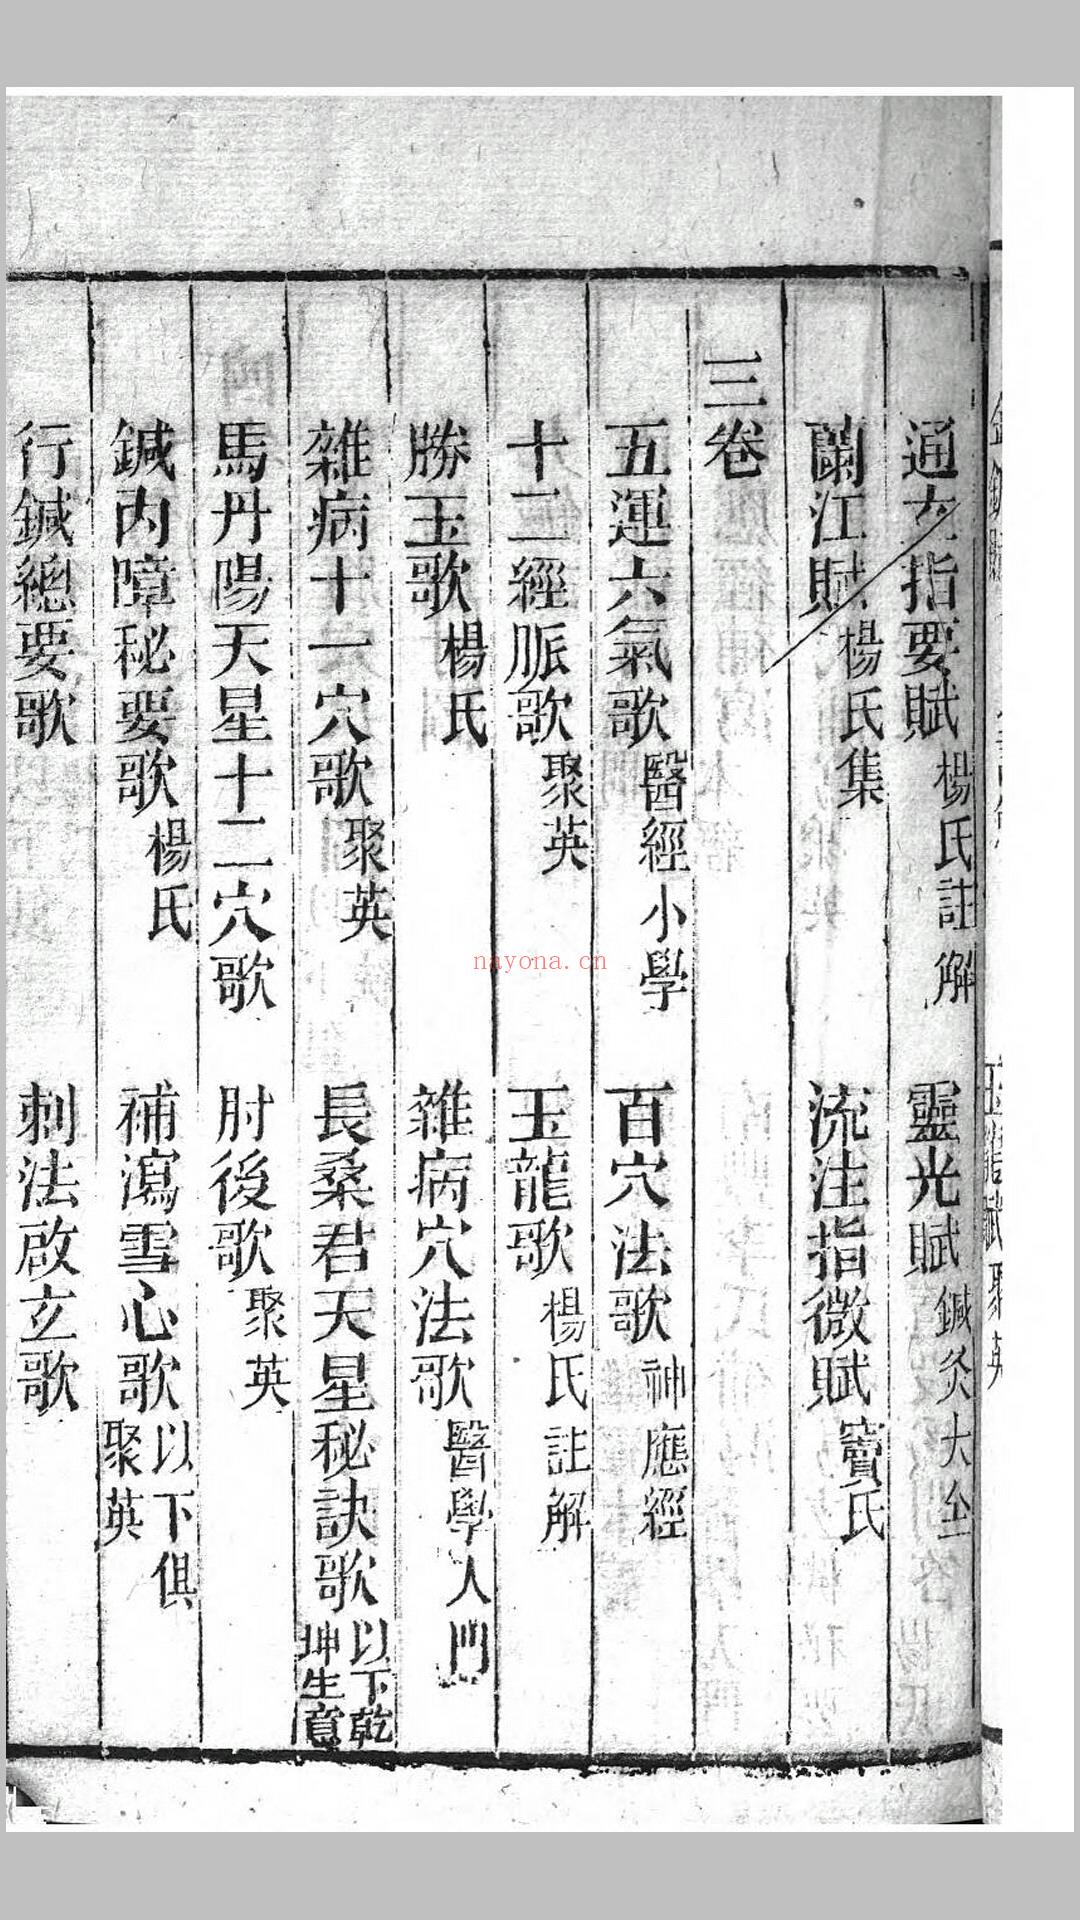 通玄指要賦楊氏註解　靈光賦鍼灸大全
蘭江賦楊氏集　流注指微賦竇氏
三卷
五運六氣歌醫經小學　百穴法歌神應經
十二經脈歌聚英　玉龍歌楊氏註解
勝玉歌楊氏　雜病穴法歌醫學入門
雜病十一穴歌聚英　長桑君天星秘訣歌以下乾坤生意
馬丹陽天星十二穴歌　肘後歌聚英
鍼內障秘要歌楊氏　補瀉雪心歌以下俱聚英
行鍼總要歌　刺法啟玄歌
nayona.cn